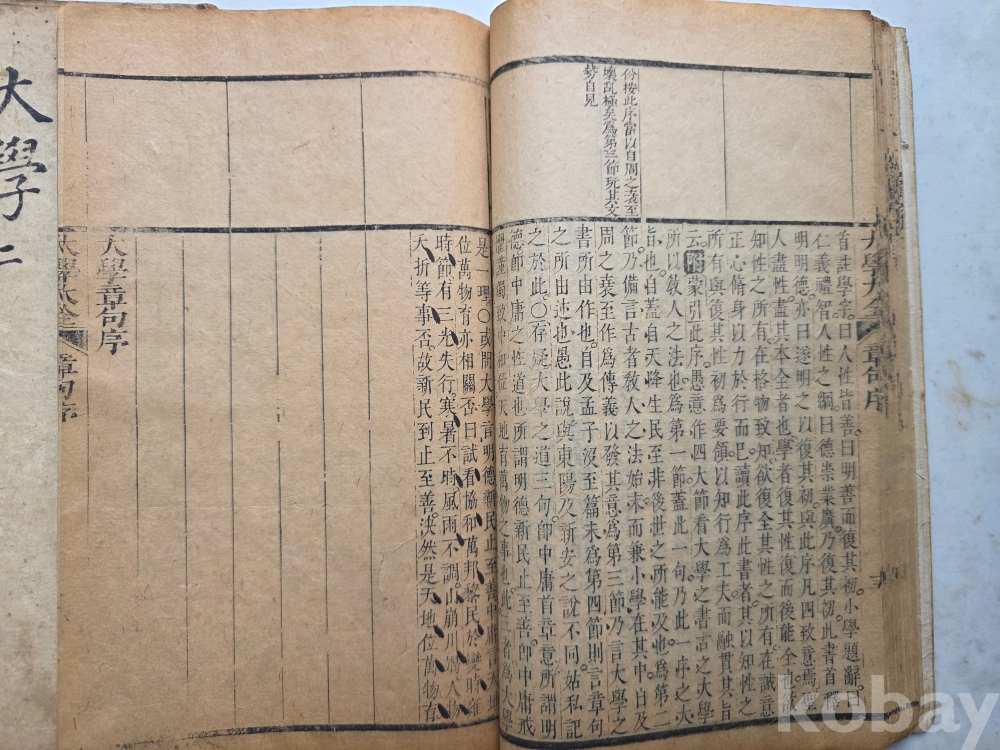 首註學字曰人性皆善曰明善而復其初小學題辭曰
仁義禮智人性之綱曰德崇業廣乃復其初此書首釋
明明德亦曰遂明之以復其初與此序凡四致意焉聖
人盡性盡其本全者也學者復其性復而後能全也欲
知性之所有在格物致知欲復全其性之所有在誠意
正心脩身以力於行而已讀此序此書者其以知性之
所有與復其性初為要領以知行為工夫而融貫其旨
云附蒙引此序愚意作四大節看大學之書古之大學
所以敎人之法也為第一節蓋此一句乃此一序之大
旨也自蓋自天降生民至非後世之所能及也為第二
節乃備言古者敎人之法始末而兼小學在其中自及
周之衰至作為傳義以發其意為第三節乃言大學之
書所由作也自及孟子沒至篇末為第四節則言章句
之所由述也愚此說與東陽及新安之說不同姑私記
之於此○存疑大學之道三句卽中庸首章意所謂明
德卽中庸之性道也所謂明德新民止至善卽中庸戒
致中和位天地育萬物之事也此二者為大學
是一理○或問大學言明德新民止至善中庸言天地
位萬物育亦相關否曰試看協和萬邦黎民於變時雍
時節有三光失行寒暑不時風雨不調山崩川竭人物
夭折等事否故新民到止至善決然是天地位萬物育
份按此序當以自周之衰至
壞亂極矣為第三節玩其文
勢自見
大學章句序
大學大全
章句序
大學大全
章句序
大學二
kobay